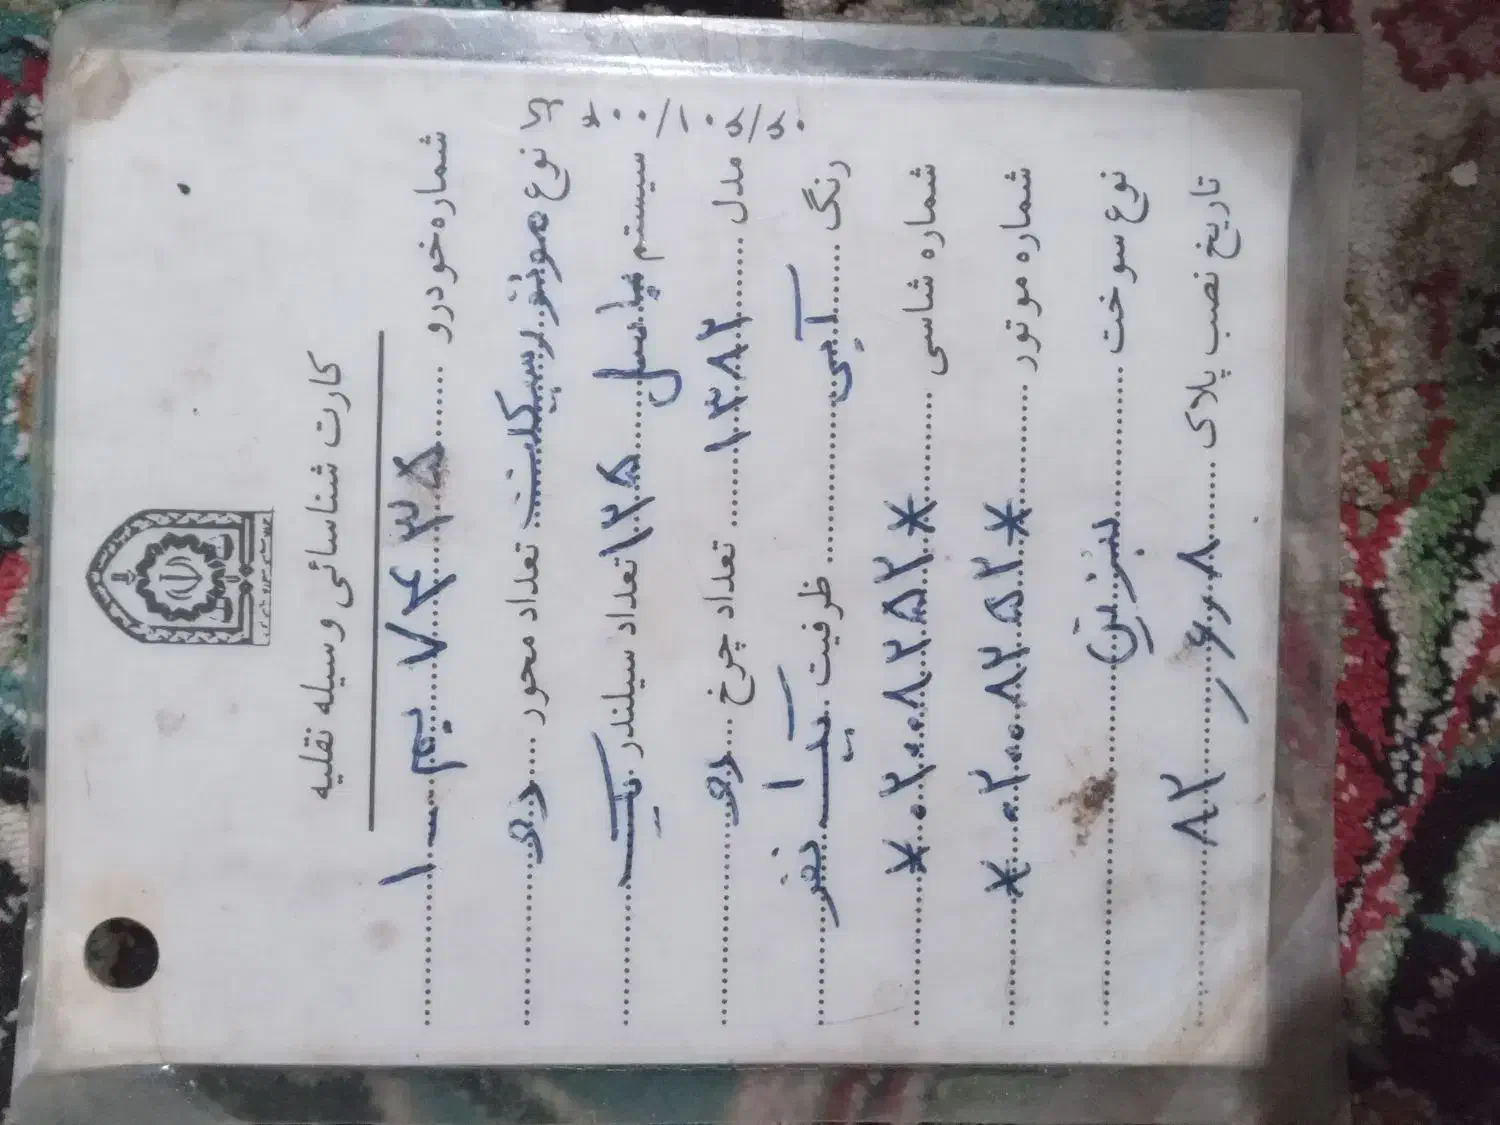 کارت شناسائی وسیله نقلیه
شماره خودرو ۷۴۳۵
نوع موتورسیکلت تعداد محور دو
سیستم باسل ۱۲۵ تعداد سیلندر یک
مدل ۱۳۸۲ تعداد چرخ دو
رنگ آبی ظرفیت یک نفر
شماره شاسی *۰۲۰۰۸۲۵۲*
شماره موتور *۰۲۰۰۸۲۵۲*
نوع سوخت بنزین
تاریخ نصب پلاک